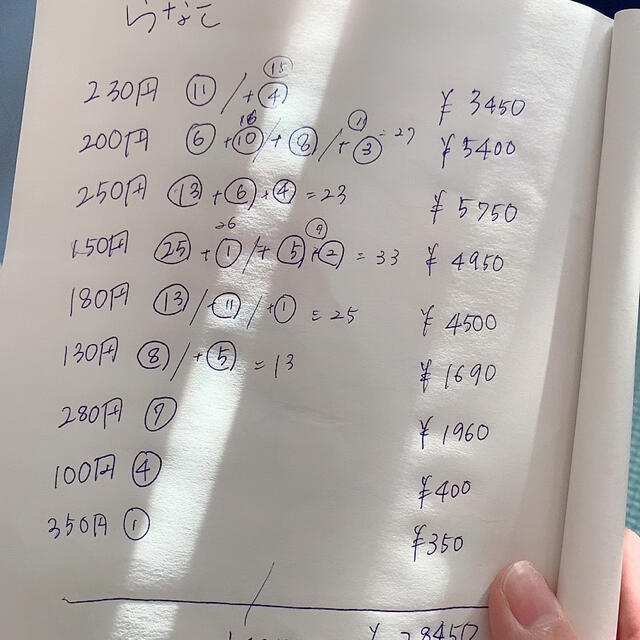 らすなこ
230円 ⑪ / + ④ ⑮ ¥3450
200円 ⑥ + ⑩ 16 / + ⑧ / + ③ ⑪ = 27 ¥5400
250円 ⑬ + ⑥ + ④ = 23 ¥5750
150円 ㉕ + ① 26 / + ⑤ + ② ⑨ = 33 ¥4950
180円 ⑬ / + ⑪ / + ① = 25 ¥4500
130円 ⑧ / + ⑤ = 13 ¥1690
280円 ⑦ ¥1960
100円 ④ ¥400
350円 ① ¥350
¥28450